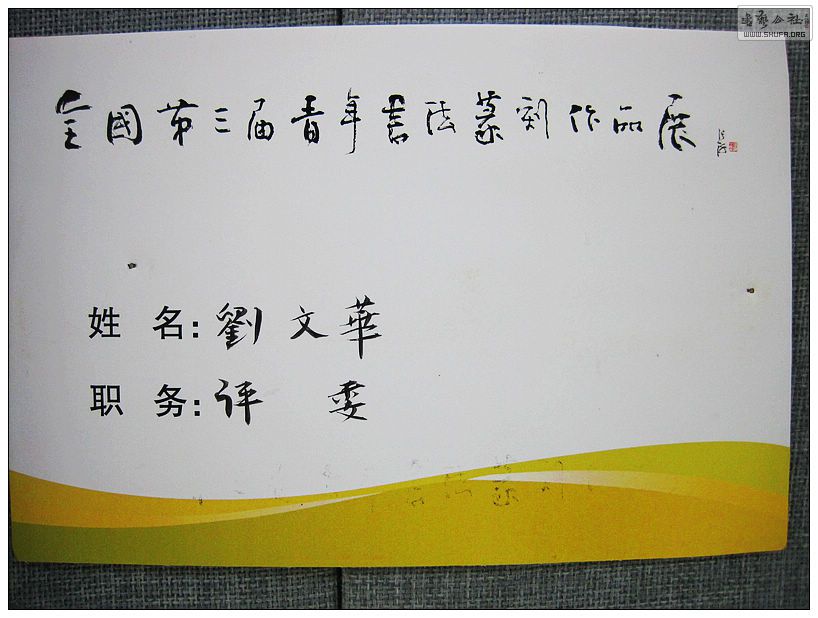 書法公社
WWW.SHUFA.ORG
全國第三届青年書法篆刻作品展
姓 名：劉文華
职 务：评 委